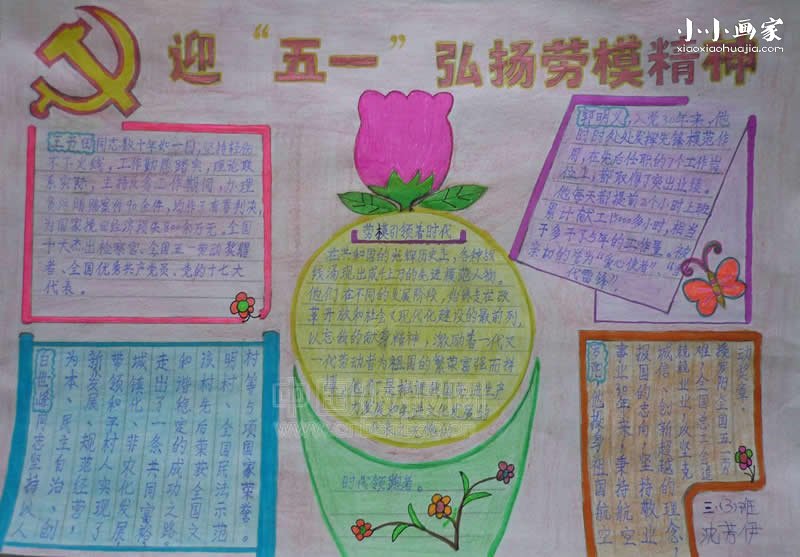 小小画家
xiaoxiaohuajia.com
迎“五一”弘扬劳模精神
王书田同志数十年如一日，坚持轻伤
不下火线，工作勤恳踏实，理论联
系实际，主持反贪工作期间，办理
贪污贿赂案件90余件，均作了有罪判决，
为国家挽回经济损失800多万元，全国
十大杰出检察官、全国五一劳动奖
者、全国优秀共产党员、党的十七大
代表。
劳模引领着时代
在共和国的光辉历史上，各种战
线涌现出成千上万的先进模范人物。
他们在不同的发展阶段，始终走在改
革开放和社会现代化建设的最前列，
以忘我的献身精神，激励着一代又
一代劳动者为祖国的繁荣富强而拼
搏
时代领跑者。
郭明义，入党30年来，他
时时处处发挥先锋模范作
用，在先后任职的7个工作岗
位上，都取得了突出业绩。
他每天都提前2个小时上班，
累计献工15000多小时，相当
于多干了5年的工作量。被
亲切的誉为“爱心使者”、“
代雷锋”
村等5项国家荣誉。
明村、全国民法示范
该村先后荣获全国文
和谐稳定的成功之路
走出了一条共同富裕
城镇化、非农化发展
带领和平村人实现了
新发展、规范经营，
为本、民主自治、创
同志坚持以人
动奖章、
全国五一劳
难，全国总工会追
兢兢业业，攻坚克
诚信、创新超越的理念
报国的志向，坚持敬业
事业30年来，秉持航空
他投身祖国航空
三.(3)班
沈芳伊